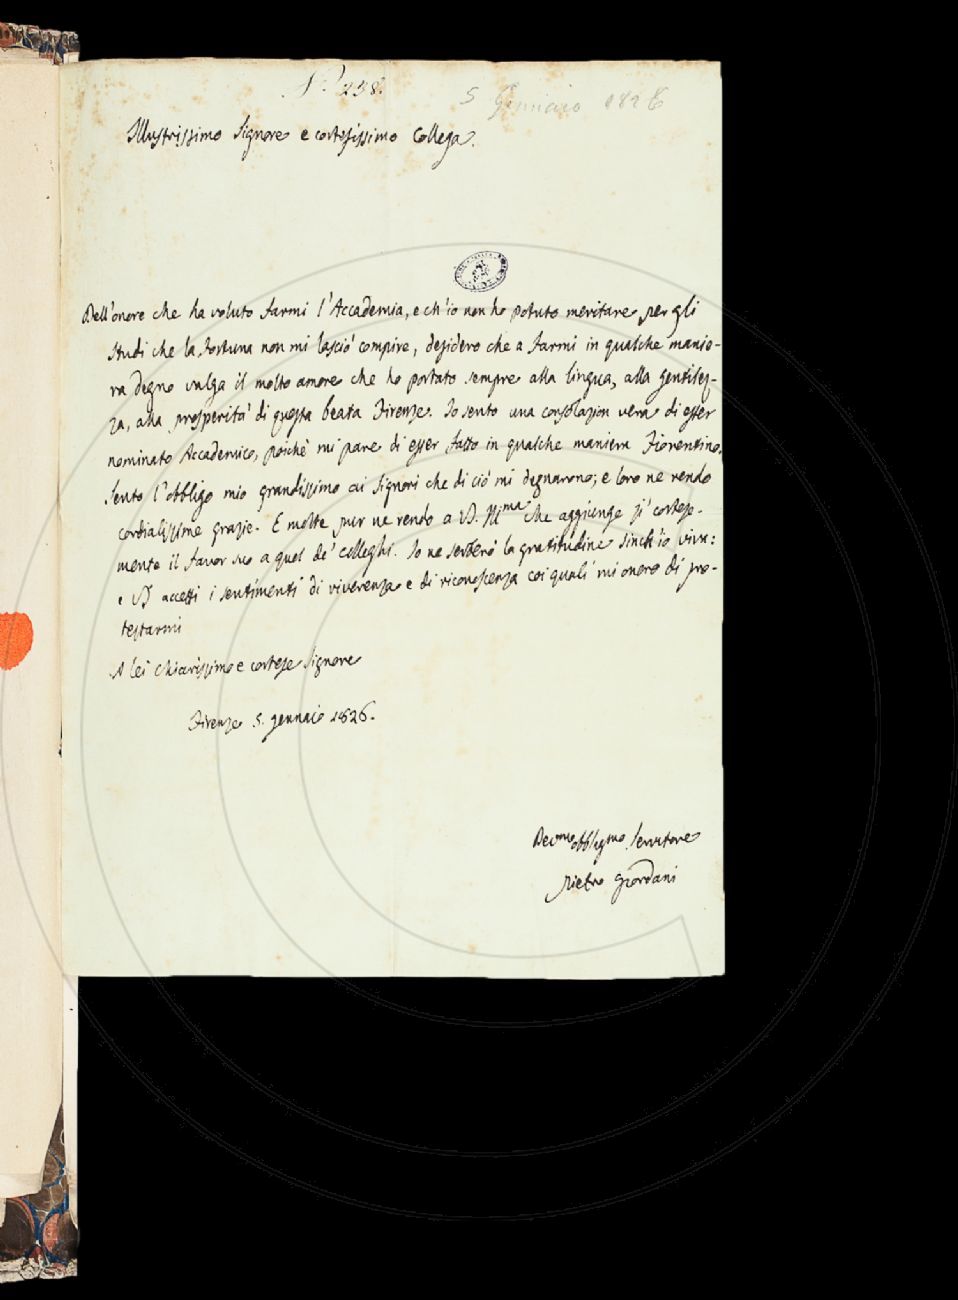 N.° 238.
5 Gennaio 1826
Illustrissimo Signore e cortesissimo Collega.
Dell'onore che ha voluto farmi l'Accademia, e ch'io non ho potuto meritare per gli
studi che la fortuna non mi lasciò compire, desidero che a farmi in qualche manie-
ra degno valga il molto amore che ho portato sempre alla lingua, alla gentilez-
za, alla prosperità di questa beata Firenze. Io sento una consolazion vera di esser
nominato Accademico, poichè mi pare di esser fatto in qualche maniera Fiorentino.
Sento l'obbligo mio grandissimo ai Signori che di ciò mi degnarono; e loro ne rendo
cordialissime grazie. E molte pur ne rendo a V. Ill.ma che aggiunge sì cortese-
mente il favor suo a quel de' colleghi. Io ne serberò la gratitudine sinch'io viva:
e V.S. accetti i sentimenti di riverenza e di riconoscenza coi quali mi onoro di pro-
testarmi
A lei chiarissimo e cortese Signore
Firenze 5. gennaio 1826.
Dev.mo obblig.mo Servitore
Pietro Giordani